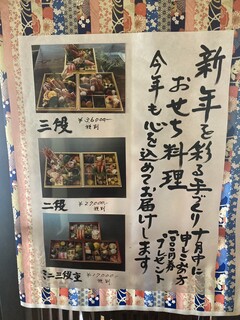 新年を彩る手づくり
おせち料理
今年も心を込めてお届けします
十月中に
申しこみの方
プレゼント
三段
特別
二段
¥27000-
特別
ミニ三段重
特別